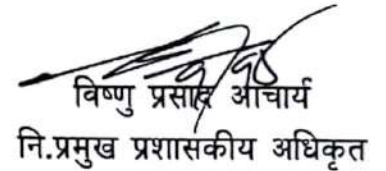 विष्णु प्रसाद आचार्य
नि.प्रमुख प्रशासकीय अधिकृत